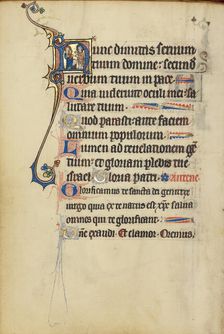 Nunc dimittis seruum
tuum domine: secundum
uerbum tuum in pace.
Quia uiderunt oculi mei sa
lutare tuum.
Quod parasti: ante faciem
omnium populorum.
Lumen ad reuelationem gen
tium: et gloriam plebis tue
israel. Gloria patri.
Glorificamus te sancta dei genitrix
uirgo quia ex te natus est xpc salua
omnes qui te glorificant.
Dne exaudi. Et clamor. Oremus.